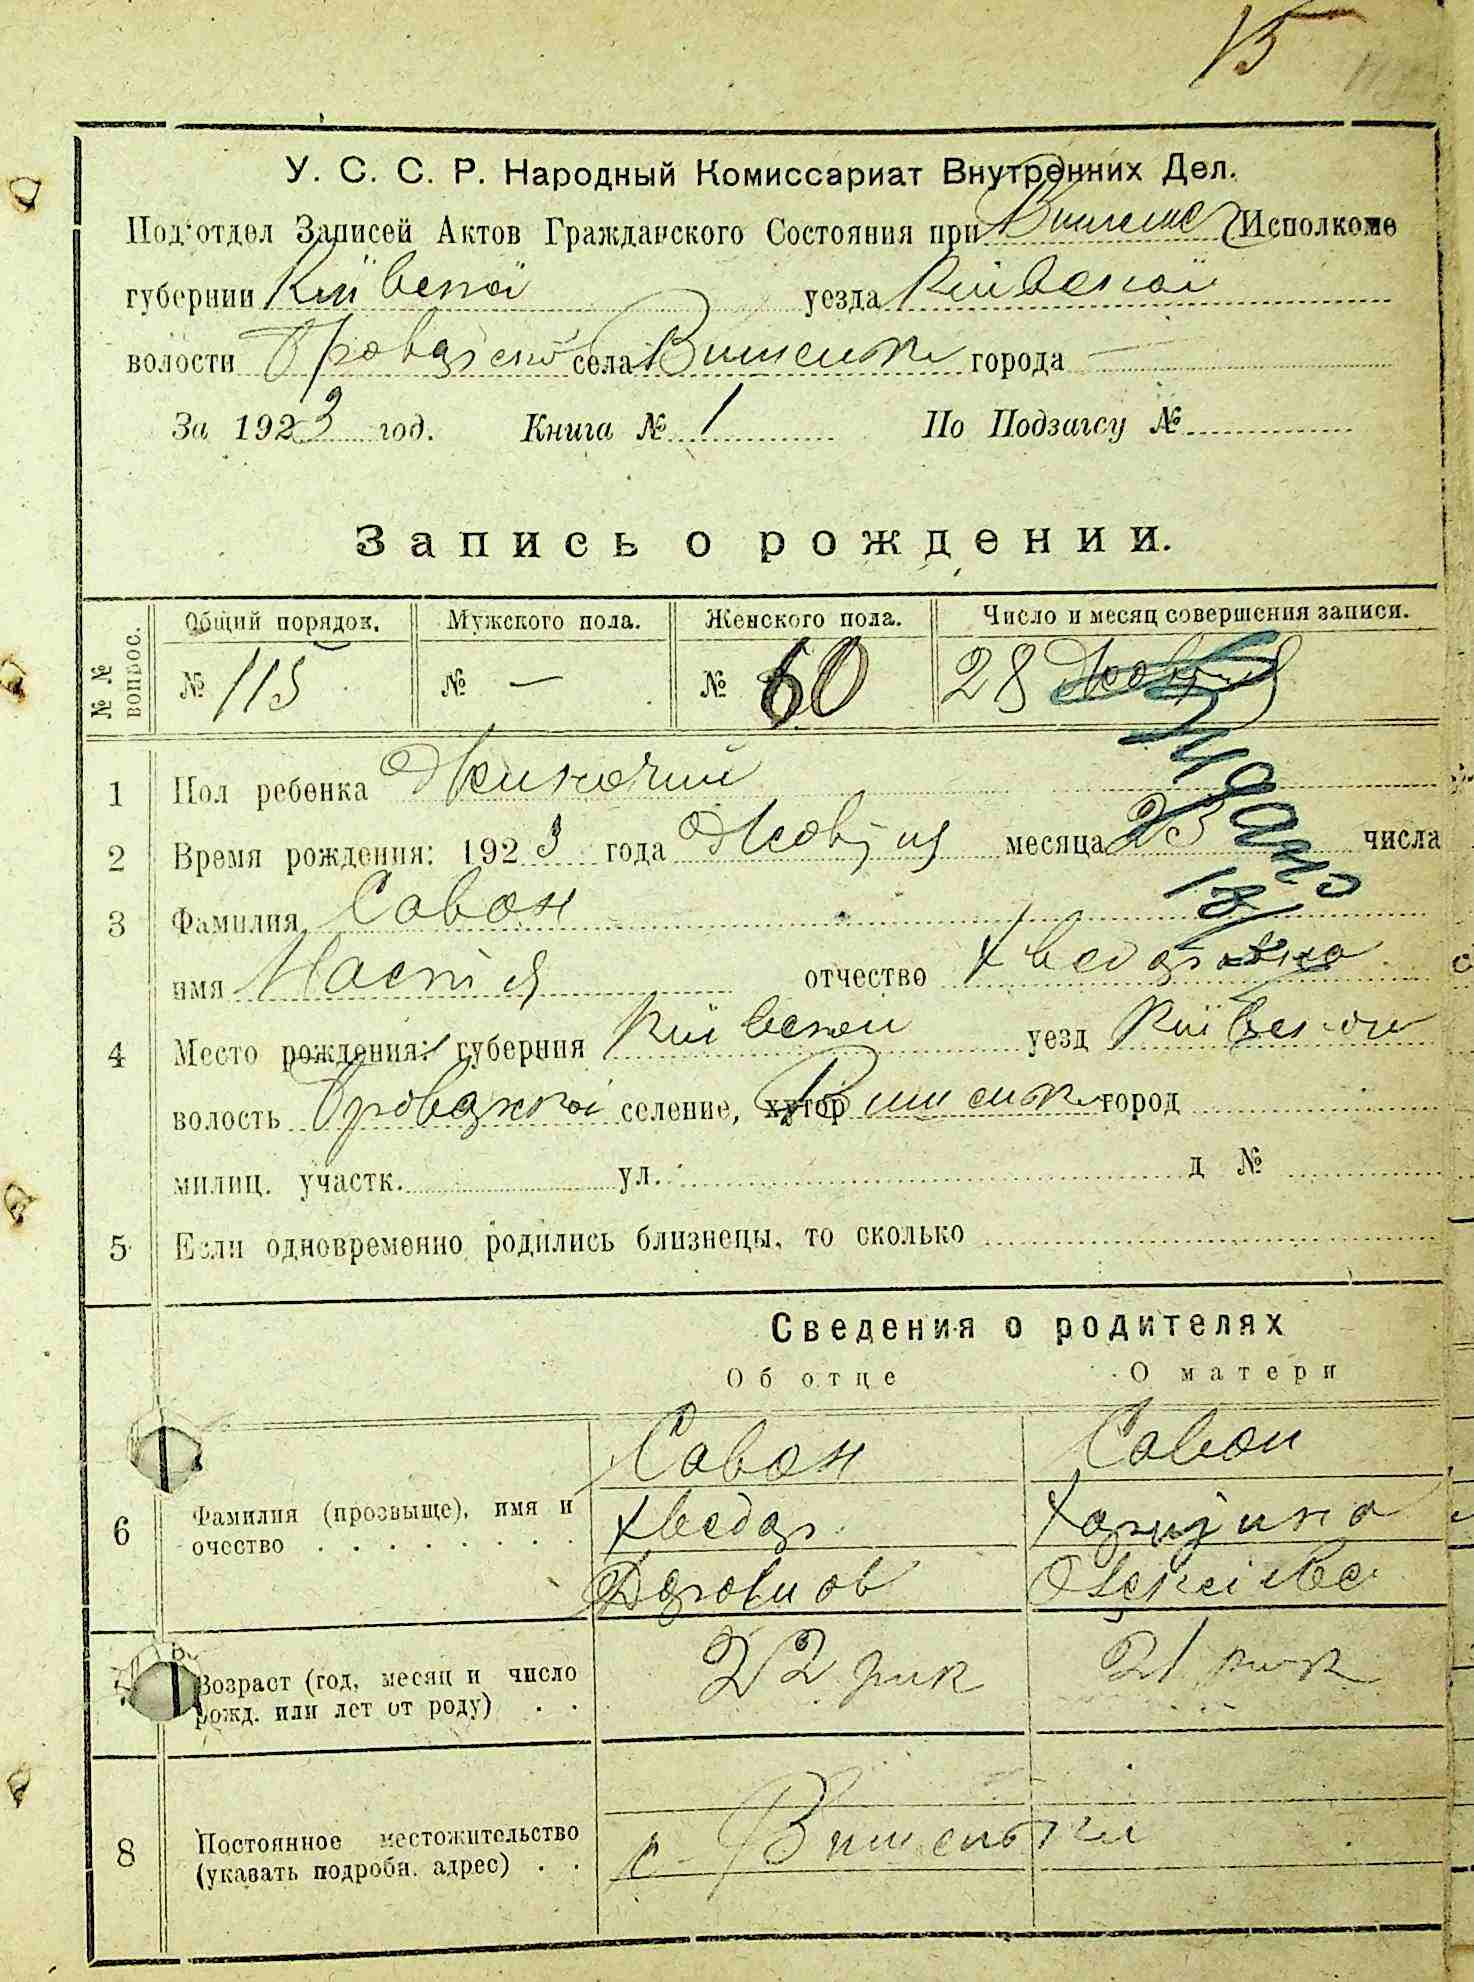 15
У. С. С. Р. Народный Комиссариат Внутренних Дел.
Под'отдел Записей Актов Гражданского Состояния при Вишенс Исполкоме
губернии Київської уезда Київської
волости села Вишеньки города —
За 1923 год. Книга № 1 По Подзагсу №
Запись о рождении.
№ № вопрос. Общий порядок. Мужского пола. Женского пола. Число и месяц совершения записи.
№ 115 № — № 60 28 Жовтня
1 Пол ребенка Жиночий
2 Время рождения: 1923 года Жовтня месяца 23 числа
3 Фамилия Савон
имя Настія отчество Хведоровна
4 Место рождения: губерния Київської уезд Київської
волость селение, хутор Вишеньки город
милиц. участк. ул. д №
5 Если одновременно родились близнецы, то сколько
Сведения о родителях
Об отце О матери
Савон Савон
6 Фамилия (прозвыще), имя и очество Хведор
Возраст (год, месяц и число рожд. или лет от роду) 22 рик 21 рик
8 Постоянное местожительство (указать подробн. адрес) с. Вишеньки